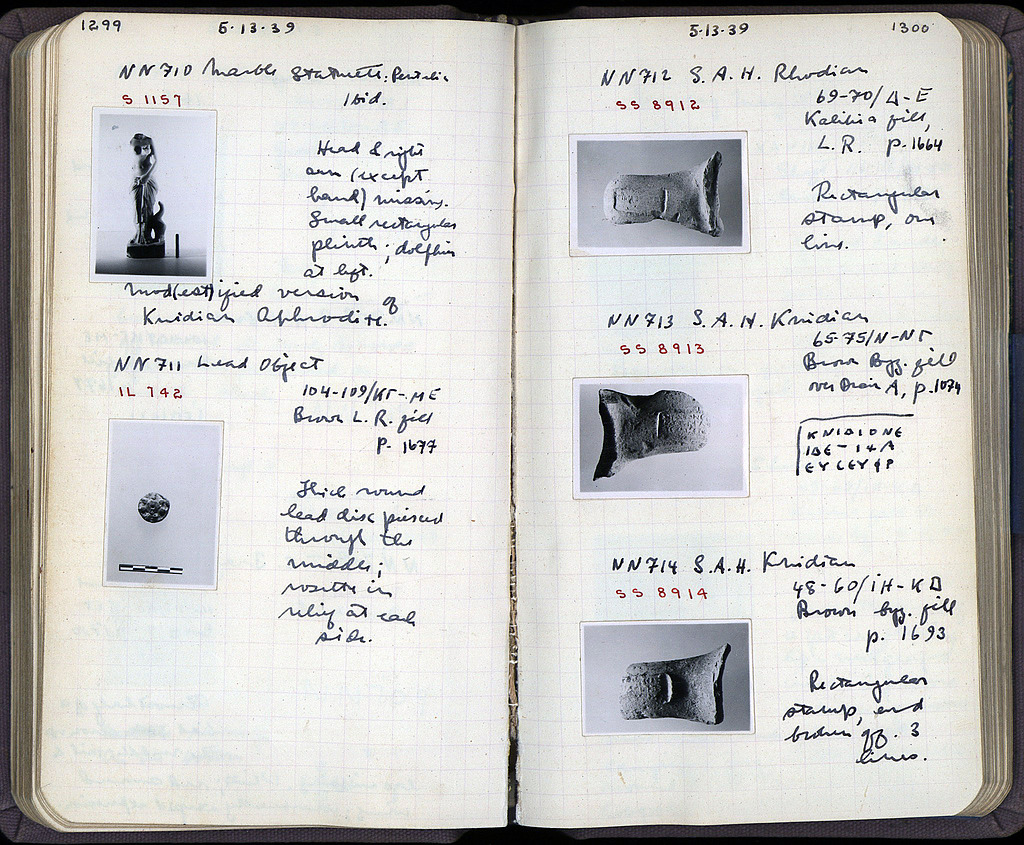 1299 5·13·39
NN710 Marble Statuette; Pentelic
S 1157 Ibid.
Head & right
arm (except
hand) missing.
Small rectangular
plinth; dolphin
at left.
mod(est)ified version of
Knidian Aphrodite.
NN711 Lead Object
IL 742 104-109/ΚΓ-ΜΕ
Brown L. R. fill
p. 1677
Thick round
lead disc pierced
through the
middle;
rosette in
relief at each
side.
5·13·39 1300
NN712 S. A. H. Rhodian
SS 8912 69-70/Δ-E
fill,
L. R. p. 1664
Rectangular
stamp, one
line.
NN713 S. A. H. Knidian
SS 8913 65-75/N-NΓ
Brown Byz. fill
over Drain A, p. 1074
KNIDIONE
EYCEY
NN714 S.A.H. Knidian
SS 8914 48-60/IH-KΔ
Brown byz. fill
p. 1693
Rectangular
stamp, end
broken off. 3
lines.